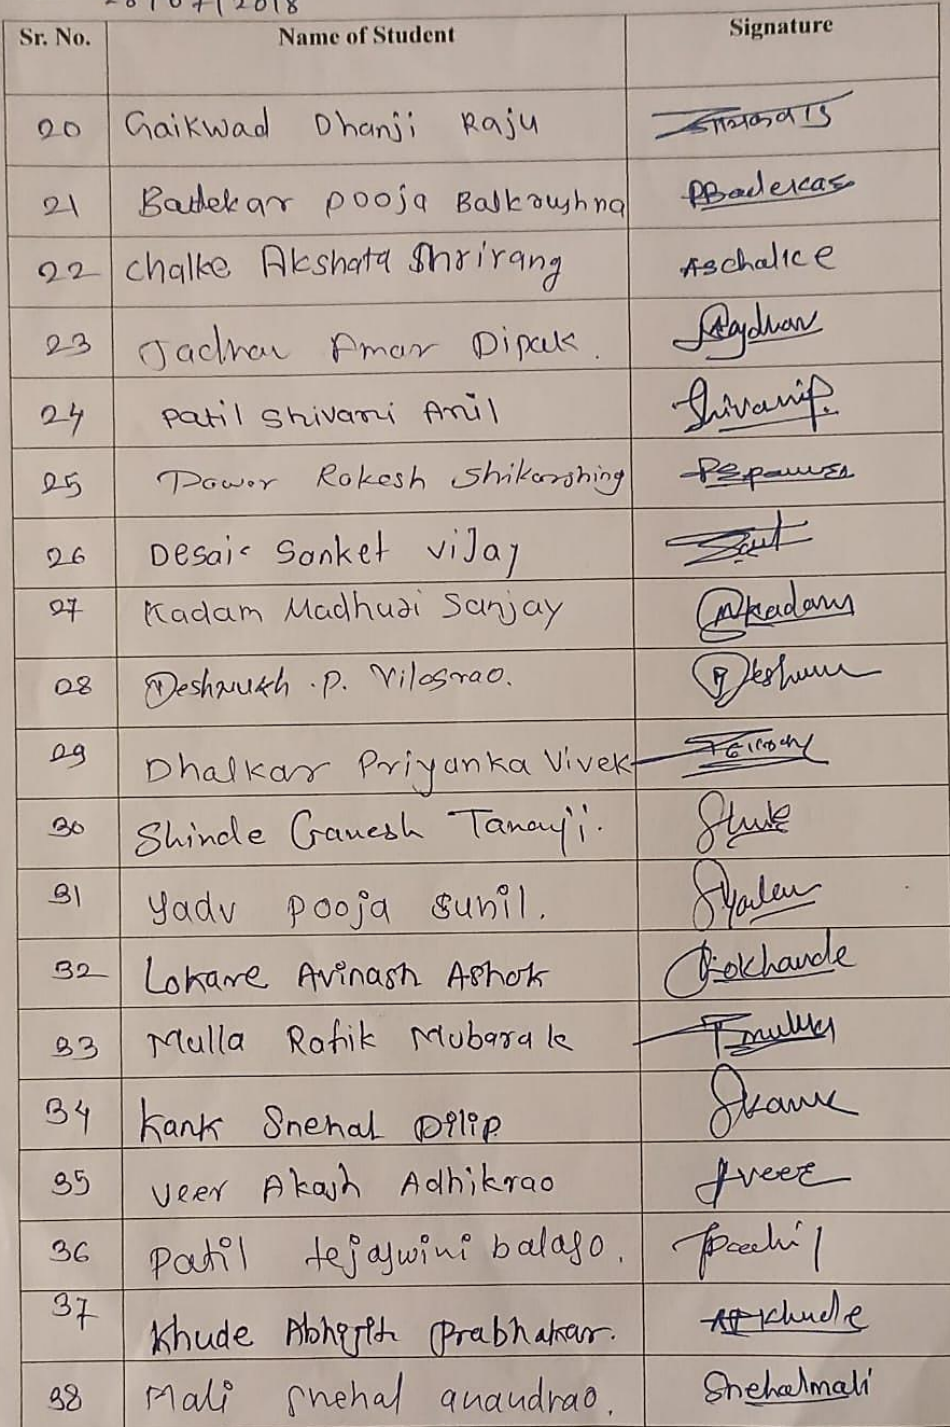 28/07/2018
Sr. No. Name of Student Signature
20 Gaikwad Dhanji Raju गायकवाड
21 Badekar Pooja Balkrushna PBadekar
22 Chalke Akshata Shrirang Aschalke
23 Jadhav Amar Dipak.
24 Patil Shivani Anil ShivaniP.
25 Pawar Rakesh Shikarshing
26 Desai Sanket Vijay
27 Kadam Madhuri Sanjay Mkadam
28 Deshmukh .P. Vilasrao.
29 Dhalkar Priyanka Vivek
30 Shinde Ganesh Tanaji.
31 Yadv Pooja Sunil.
32 Lokare Avinash Ashok Lokhande
33 Mulla Rafik Mubarak
34 Kank Snehal Dilip
35 Veer Akash Adhikrao Aveer
36 Patil tejaswini balaso.
37 Khude Abhijith Prabhakar. APKhude
38 Mali Snehal anandrao. Snehalmali